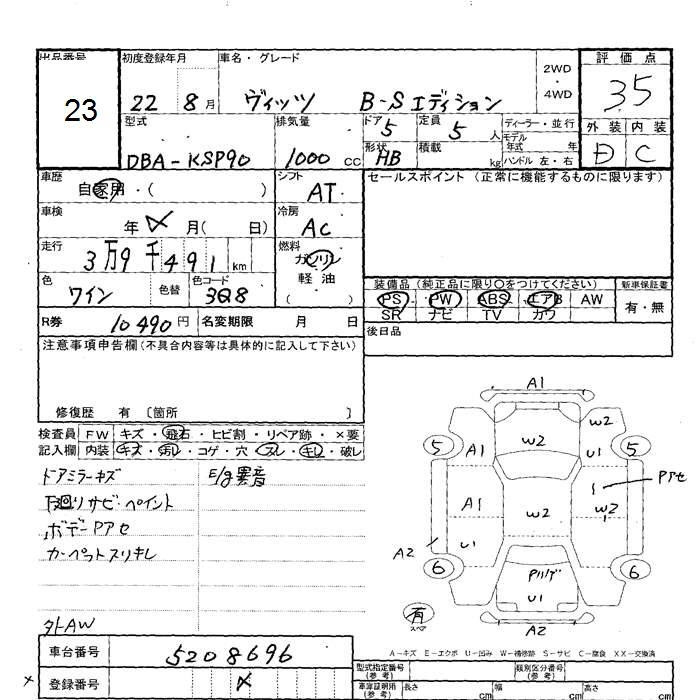 出品番号 初度登録年月 車名・グレード 2WD 評価点
23 22 8月 ヴィッツ B-Sエディション ・4WD 35
型式 排気量 ドア 5 定員 5人 ディーラー・並行 外装 内装
モデル年式 年
DBA-KSP90 1000cc 形状 HB 積載 kg ハンドル 左・右 D C
車歴 自家用・( ) シフト AT セールスポイント(正常に機能するものに限ります)
車検 年 月( 日) 冷房 AC
走行 3万9千491km 燃料 ガソリン
軽油
( )
色 ワイン 色替 色コード 3Q8 装備品(純正品に限り○をつけてください) 新車保証書
PS PW ABS エアB AW 有・無
SR ナビ TV カワ
R券 10490円 名変期限 月 日 後日品
注意事項申告欄(不具合内容等は具体的に記入して下さい)
修復歴 有〔箇所 〕
検査員 FW キズ・飛石・ヒビ割・リペア跡・×要
記入欄 内装 キズ・汚れ・コゲ・穴・スレ・キレ・破レ
ドアミラーキズ E/g異音
下廻りサビ・ペイント
ボデーPアセ
カーペットスリキレ
タトAW
A1
W2
5 A1 W2 U1 5
A1 W2 W2 Pアセ
A2 U1
6 Pハゲ 6
U1
有 スペア A2
A-キズ E-エクボ U-凹み W-補修跡 S-サビ C-腐食 XX-交換済
車台番号 5208696 型式指定番号(参考) 類別区分番号(参考)
登録番号 車庫証明用(参考) 長さ cm 幅 cm 高さ cm